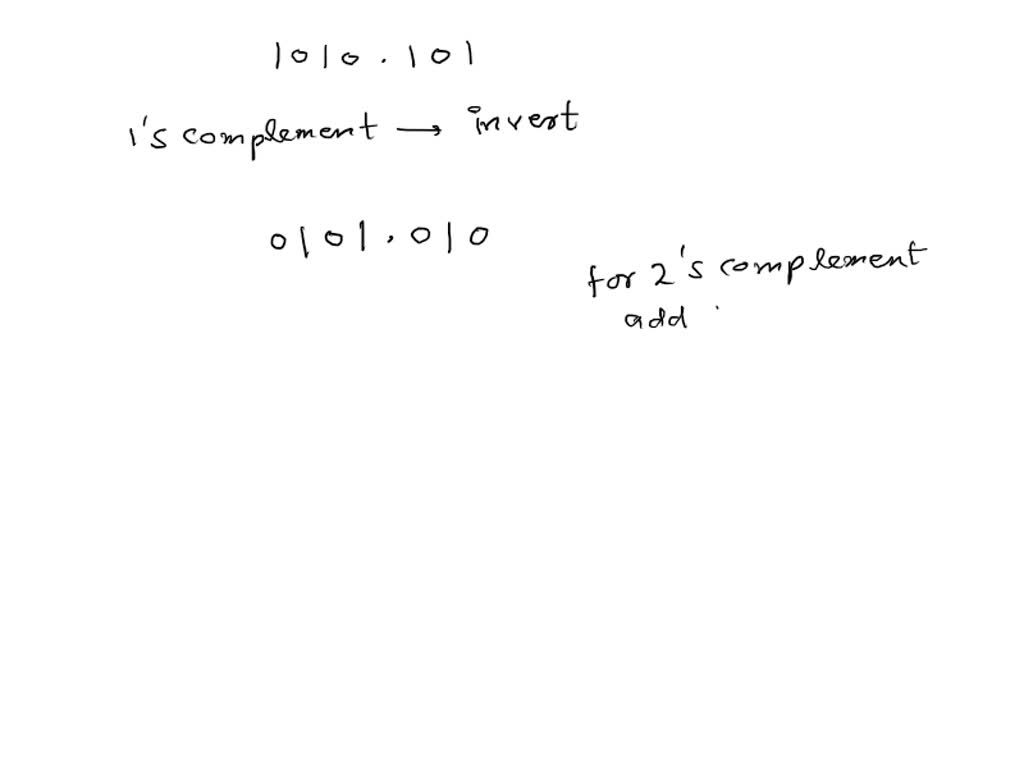 1010.101
1's complement → invert
0101.010
for 2's complement
add